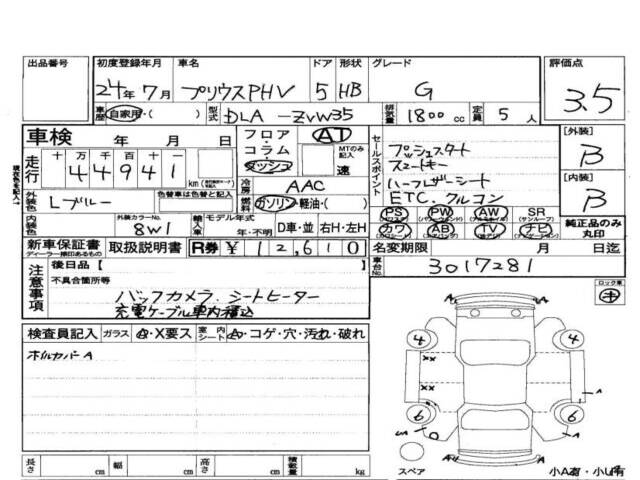 出品番号 初度登録年月 車名 ドア 形状 グレード 評価点
24年7月 プリウスPHV 5 HB G 3.5
車歴 自家用・( ) 型式 DLA-ZVW35 排気量 1800 cc 定員 5 人
車検 年 月 日
フロア・コラム・ダッシュ AT MTのみ記入 速
走行 十万 千百十一 44941 km
セールスポイント
プッシュスタート
スマートキー
ハーフレザーシート
ETC. クルコン
[外装] B
[内装] B
外装色 Lブルー 色替車は色替色で記入
冷房 AAC
燃料 ガソリン・軽油・( )
PS PW AW SR (サンルーフ)
カワ AB TV ナビ
純正品のみ丸印
内装色 外装カラーNo. 8W1 輸入車 モデル年式 年・不明 D車・並 右H・左H
新車保証書 ディーラー捺印あるもの 取扱説明書 R券 ¥12,610
名変期限 月 日迄
車台No. 3017281
注意事項 後日品[ ]
不具合箇所等
バックカメラ. シートヒーター
充電ケーブル車内積込
ロック車
検査員記入 ガラス A・X要ス 室内シート A・コゲ・穴・汚れ・破れ
ホイルカバーA
4 4
XX
XX A
6 6
A
A
スペア
小A有・小U有
長さ cm 幅 cm 高さ cm 積載量 kg